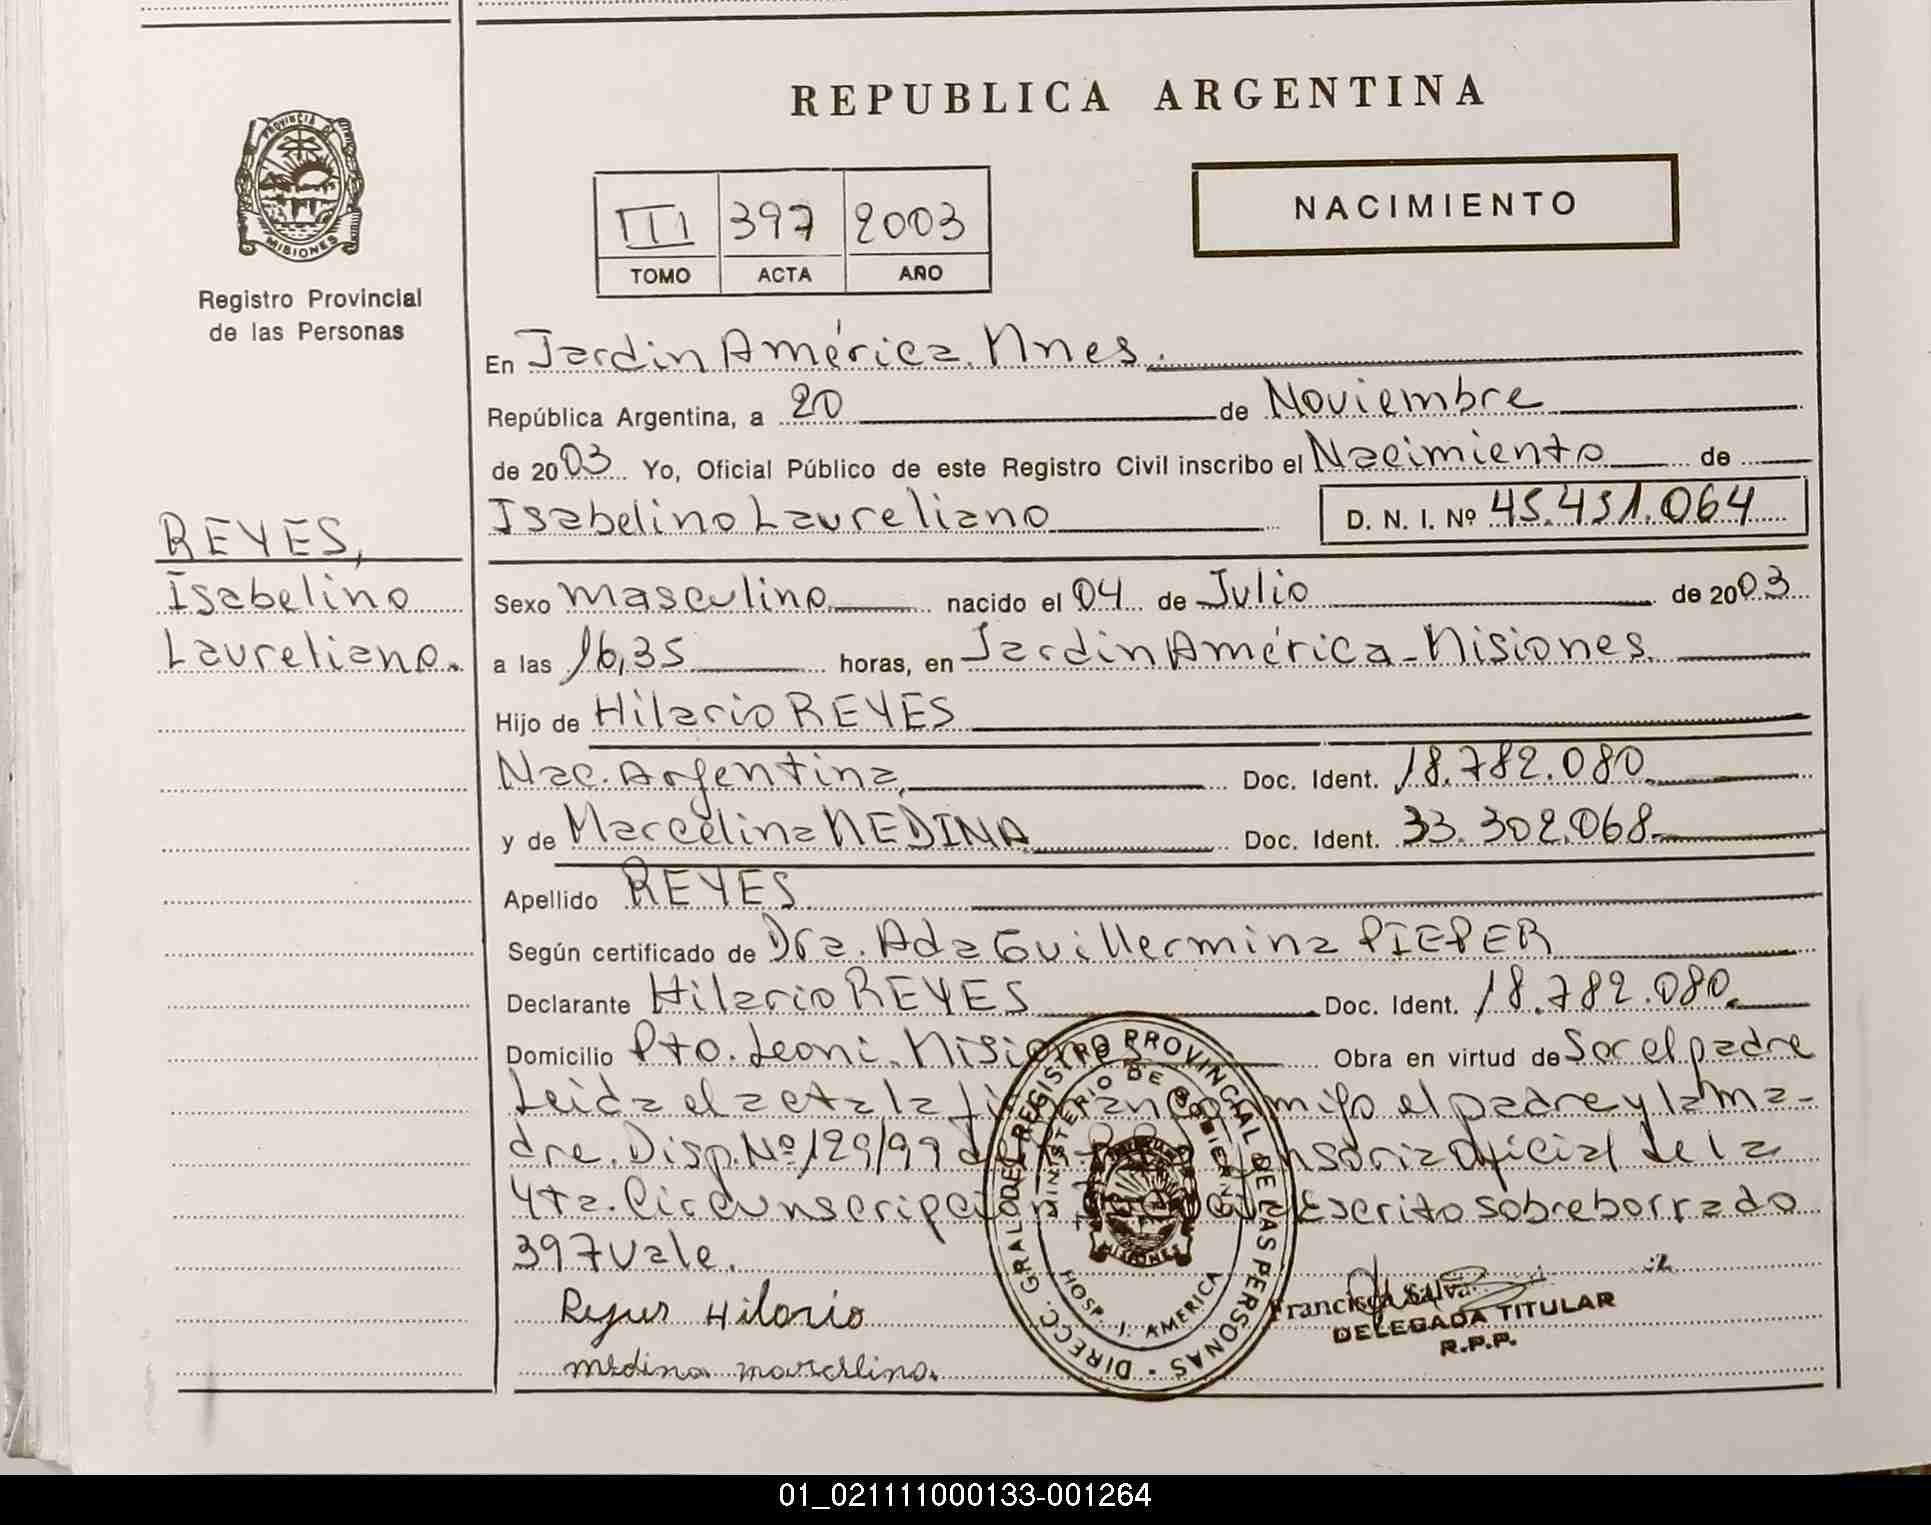 PROVINCIA DE
MISIONES
Registro Provincial
de las Personas
REYES,
Isabelino
Laureliano.
REPUBLICA ARGENTINA
III 397 2003
TOMO ACTA AÑO
NACIMIENTO
En Jardin América. Mnes.
República Argentina, a 20 de Noviembre
de 2003 Yo, Oficial Público de este Registro Civil inscribo el Nacimiento de
Isabelino Laureliano D. N. I. Nº 45.451.064
Sexo masculino nacido el 04 de Julio de 2003
a las 16,35 horas, en Jardin América - Misiones.
Hijo de Hilario REYES
Nac. Argentina, Doc. Ident. 18.782.080
y de Marcelina MEDINA Doc. Ident. 33.302.068
Apellido REYES
Según certificado de Dra. Ada Guillermina PIEPER
Declarante Hilario REYES Doc. Ident. 18.782.080.
Domicilio Pto. Leoni. Misiones Obra en virtud de Ser el padre
Leida el acta la firman conmigo el padre y la ma-
dre. Disp. Nº 129/99 oficial de la
4ta. Circunscripción Escrito sobre borrado
397 Vale.
Reyes Hilario
medina marcelina.
DIRECC. GRAL DEL REGISTRO PROVINCIAL DE LAS PERSONAS
MINISTERIO DE GOBIERNO
MISIONES
HOSP. J. AMERICA
Francisca Silva
DELEGADA TITULAR
R.P.P.
01_021111000133-001264